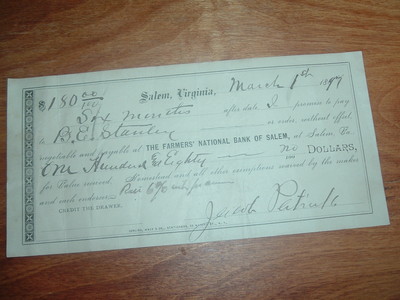 $180 00/100 Salem, Virginia, March 1st 1897
Six months after date I promise to pay
to B. E. Stanley or order, without offset,
negotiable and payable at THE FARMERS' NATIONAL BANK OF SALEM, at Salem Co.
One Hundred & Eighty no/100 DOLLARS,
for Value received. Homestead and all other exemptions waived by the maker
and each endorser.
CREDIT THE DRAWER.
Jacob